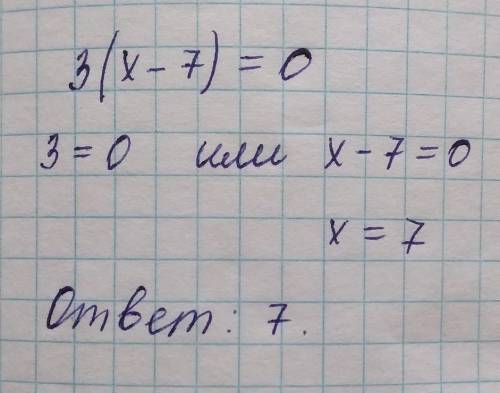 3(x-7)=0
3=0 или x-7=0
x=7
Ответ: 7.